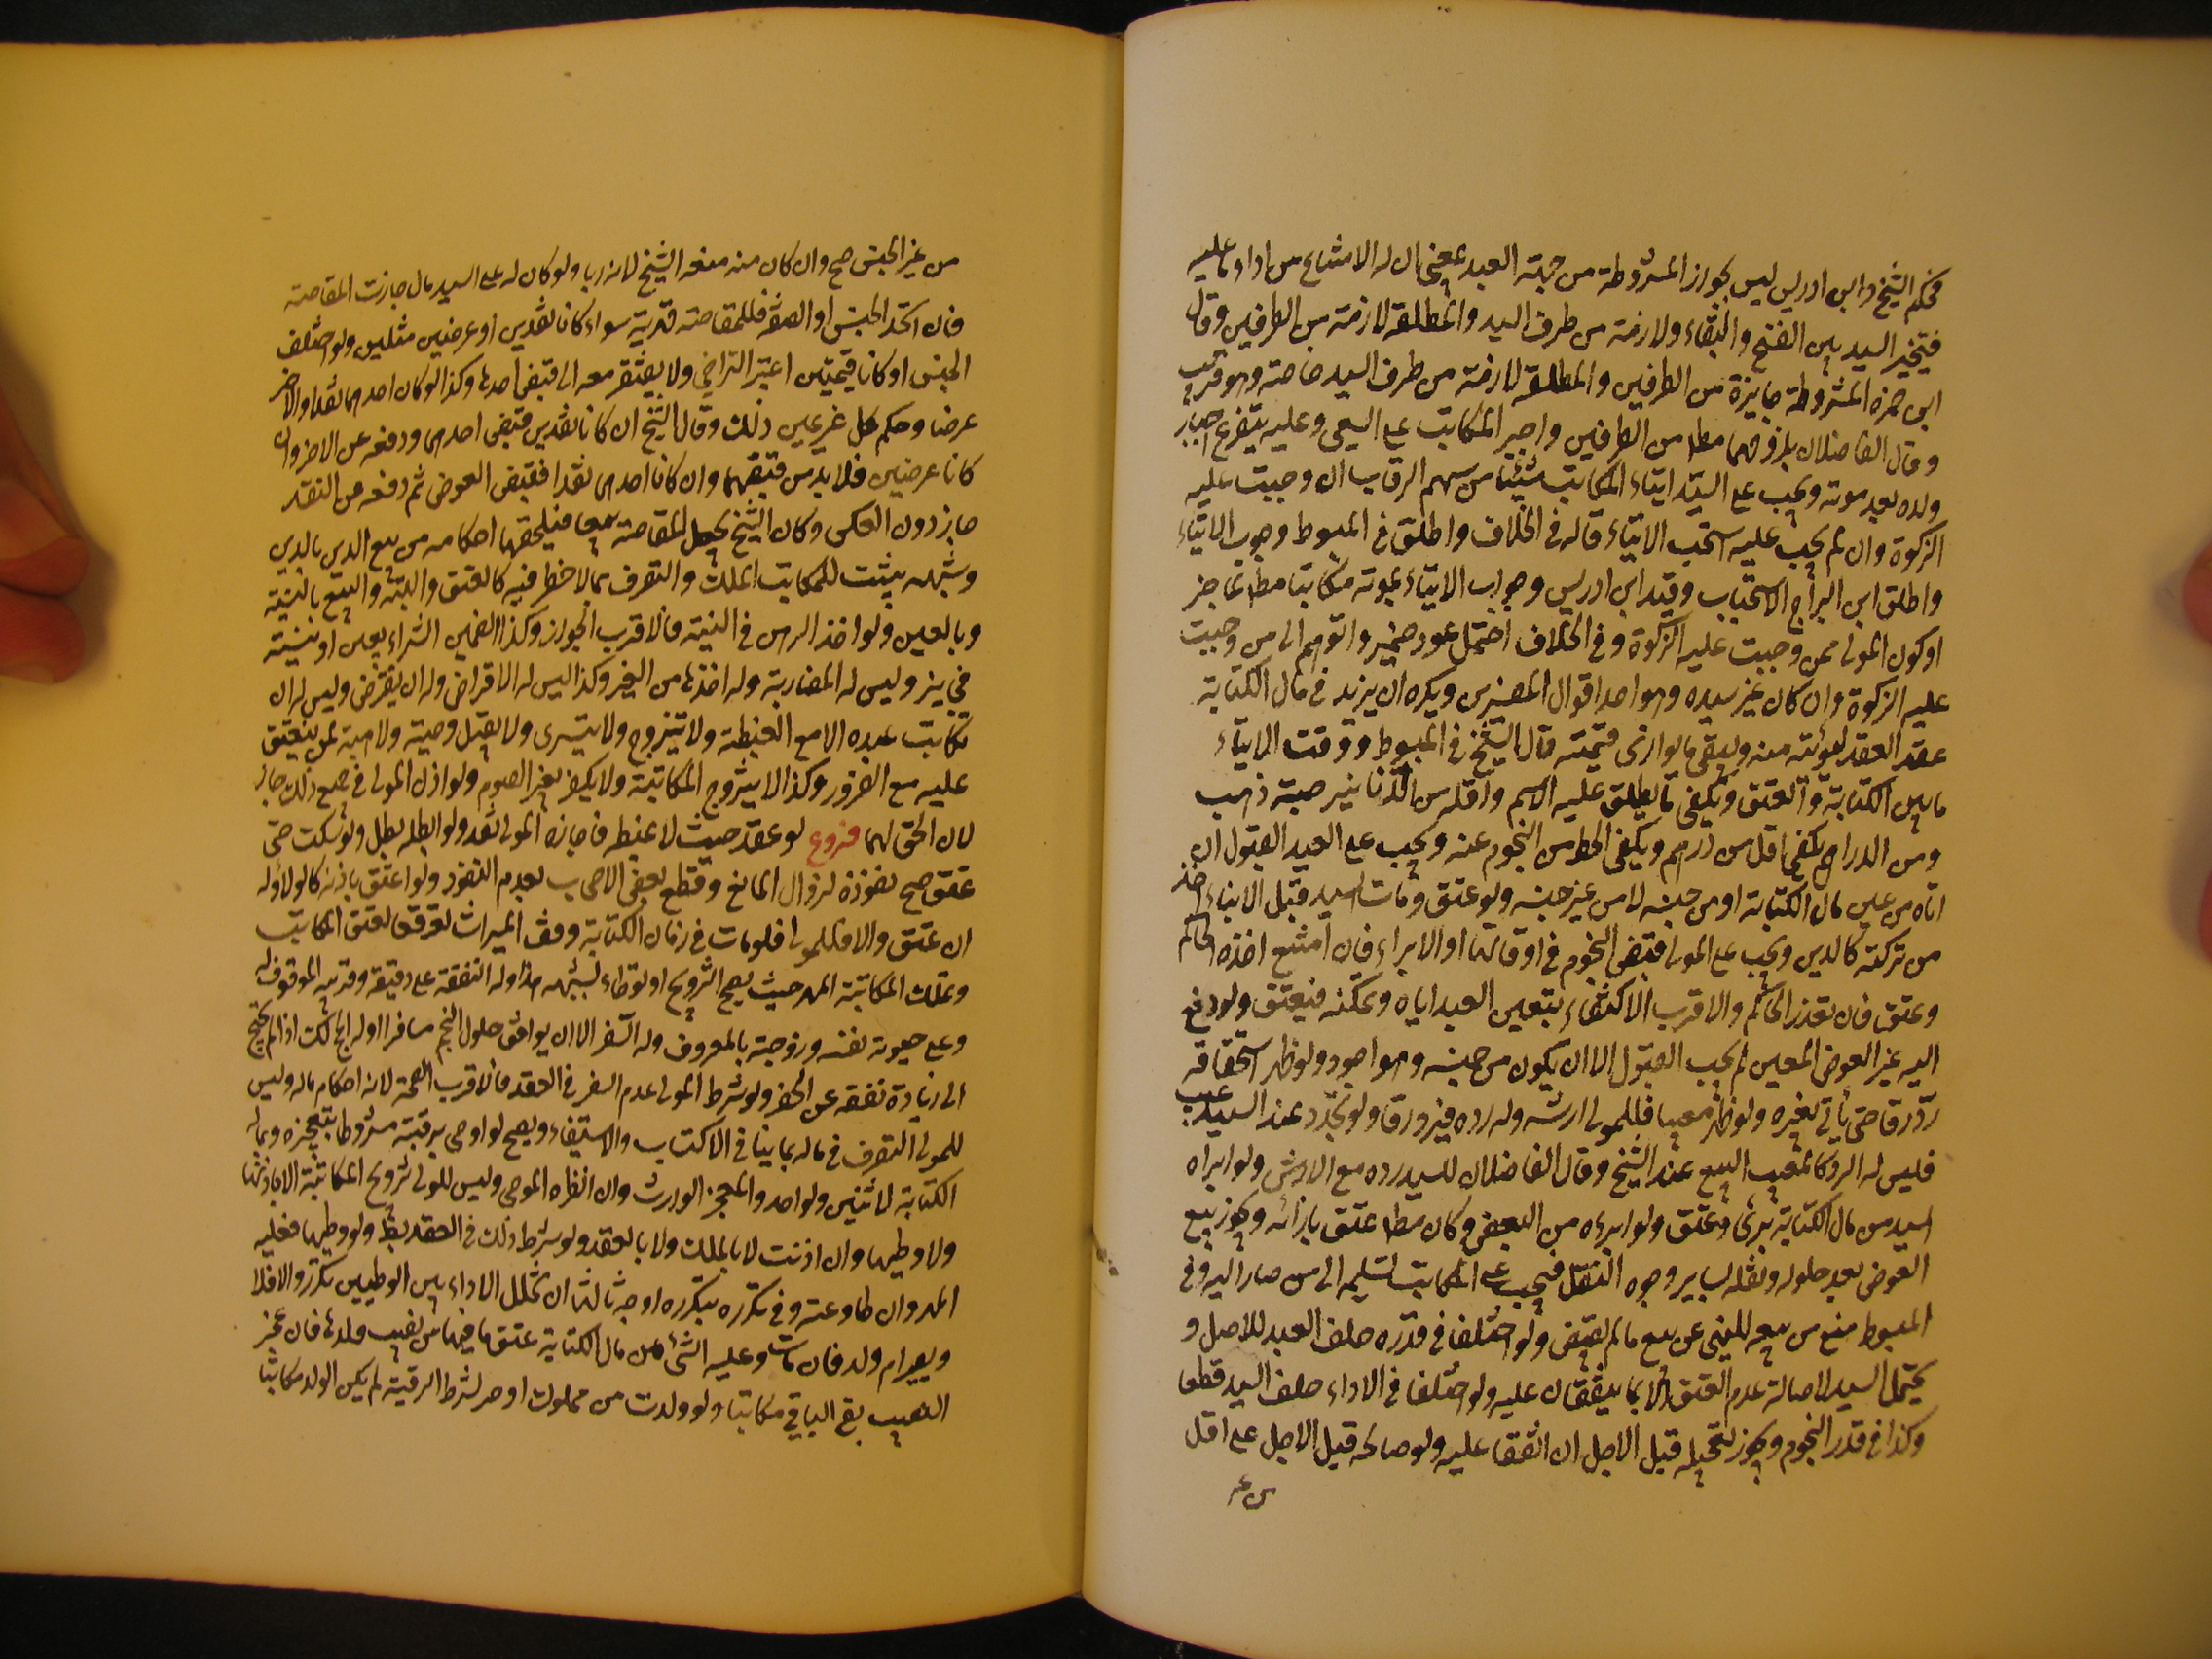 فحكم الشيخ وابن ادريس ليس بجواز المشروطة من جهة العبد بمعنى ان له الامتناع من اداء ما عليه
فيتخير السيد بين الفسخ والبقاء ولازمة من طرف السيد والمطلقة لازمة من الطرفين وقال
ابن حمزه المشروطة جايزة من الطرفين والمطلقة لازمة من طرف السيد خاصة وهو قريب
وقال الفاضلان بلزومهما مطا من الطرفين واجبر المكاتب على السعى وعليه يتفرع اجبار
ولده بعد موته ويجب على السيد ايتاء المكاتب شيئا من سهم الرقاب ان وجبت عليه
الزكوة وان لم يجب عليه استحب الايتاء قاله فى الخلاف واطلق فى المبسوط وجوب الايتاء
واطلق ابن البراج الاستحباب وقيد ابن ادريس وجوب الايتاء بموته مكاتبا مطا عاجز
او كون المولى ممن وجبت عليه الزكوة وفى الخلاف احتمل عود ضمير واتوهم الى من وجبت
عليه الزكوة وان كان غير سيده وهو احد اقوال المفسرين ويكره ان يزيد فى مال الكتابة
عقد العقد ليؤتيه منه ويبقى ما يوازى قيمته قال الشيخ فى المبسوط ووقت الايتاء
ما بين الكتابة والعتق ويكفى ما يطلق عليه الاسم واقله من الدنانير حبة ذهب
ومن الدراهم يكفى اقل من درهم ويكفى الحط من النجوم عنه ويجب على العبد القبول ان
اتاه من عين مال الكتابة او من جنسه لا من غير جنسه ولو عتق ومات السيد قبل الايتاء اخذ
من تركته كالدين ويجب على المولى قبض النجوم فى اوقاتها او الابراء فان امتنع اخذه الحاكم
وعتق فان تعذر الحاكم والاقرب الاكتفاء بتعيين العبد اياه وتمكنه فيعتق ولو دفع
اليه غير العوض المعين لم يجب القبول الا ان يكون من جنسه وهو اجود ولو ظهر استحقاقه
رد رقا حتى يأتى بغيره ولو ظهر معيبا فللمولى ارشه وله رده فيزو رقا ولو تجدد عند السيد عيب
فليس له الرد كالمعيب البيع عند الشيخ وقال الفاضلان للسيد رده مع الارش ولو ابراه
السيد من مال الكتابة برئ وعتق ولو ابرءه من البعض وكان مطا عتق بازائه ويجوز بيع
العوض بعد حلوله ونقله بساير وجوه النقل فيجب على المكاتب تسليمه الى من صار اليه وفى
المبسوط منع من بيعه للنهى عن بيع ما لم يقبض ولو اختلفا فى قدره حلف العبد للاصل و
يحتمل السيد لاصالة عدم العتق الا بما يتفقان عليه ولو اختلفا فى الاداء حلف السيد قطعا
وكذا فى قدر النجوم ويجوز تعجيله قبل الاجل ان اتفقا عليه ولو صالحه قبل الاجل على اقل
من غير
من غير الجنس صح وان كان منه منعه الشيخ لانه ربا ولو كان له على السيد مال جازت المقاصة
فان اتحد الجنس او الصفة فللمقاصة قهرية سواء كانا نقدين او عرضين مثليين ولو اختلف
الجنس او كانا قيميين اعتبر التراضى ولا يفتقر معه الى قبض احدها وكذا لو كان احدهما نقدا والاخر
عرضا وحكم كل غريمين ذلك وقال الشيخ ان كانا نقدين قبض احدهما ودفعه عن الاخر وان
كانا عرضين فلا بد من قبضهما وان كانا احدهما نقدا فقبض العوض ثم دفعه عن النقد
جاز دون العكس وكان الشيخ يجعل المقاصة بيعا فيلحقها احكامه من بيع الدين بالدين
وشبهه يثبت للمكاتب الملك والتصرف بما لا خطر فيه كالعتق والهبة والبيع بالنسية
وبالعين ولو اخذ الرهن فى النسية فالاقرب الجواز وكذا الضمين الشراء بعين او نسية
فى يز وليس له المضاربة وله اخذها من الغير وكذا ليس له الاقراض وله ان يقترض وليس له ان
يكاتب عبده الا مع الغبطة ولا يتزوج ولا يتسرى ولا يقبل وصية ولا هبة لمن ينعتق
عليه مع الضرور وكذا لا يتزوج المكاتبة ولا يكفر بغير الصوم ولو اذن المولى فى جميع ذلك جاز
لان الحق لهما فروع لو عقد حيث لا غبطه فاجازه المولى نفذ ولو ابطله بطل ولو سكت حتى
عتق صح نفوذه لزوال المانع وقطع بعض الاصحاب بعدم النفوذ ولو اعتق باذنه كالولاؤله
ان عتق والا فللمولى فلو مات فى زمان الكتابة وقف الميراث توقعا لعتق المكاتب
وتملك المكاتبة المهر حيث يصح التزويج او يوطاء لشبهه هذا وله النفقة على رقيقه وقريبه الموقوف له
وعلى حيوته نفسه وزوجته بالمعروف وله السفر الا ان يوافق حلول النجم مسافرا وله المكث اذا لم يحتج
الى زيادة نفقه عن الحضر ولو شرط المولى عدم السفر فى العقد فالاقرب الصحة لانه احكام ماله وليس
للمولى التصرف فى ماله بما ينافى الاكتساب والاستيفاء ويصح لو اوصى برقبته مشروطا بتعجيزه وبمال
الكتابة لاثنين ولواحد والمعجز الوارث وان انظره الموصى وليس للمولى تزويج المكاتبة الا باذنها
ولا وطيها وان اذنت لا بالملك ولا بالعقد ولو شرط ذلك فى العقد بطل ولو وطيها فعليه
المهر وان طاوعته وفى تكرره بتكرره اوجه ثالثها ان تخلل الاداء بين الوطيين تكرر والا فلا
ويصير ام ولد فان مات وعليه الشئ من مال الكتابة عتق ما فيها من نصيب ولدها فان عجز
النصيب بقى الباقى مكاتبا ولو ولدت من مملوك او حر لشرط الرقية لم يكن الولد مكاتبا